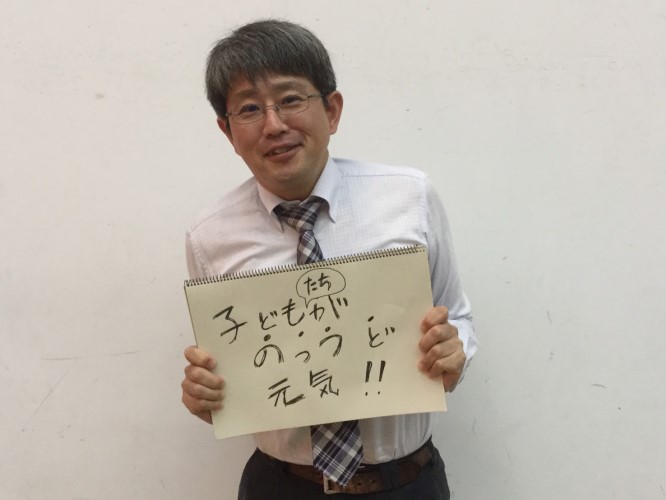 子どもたちが
のっうど
元気!!